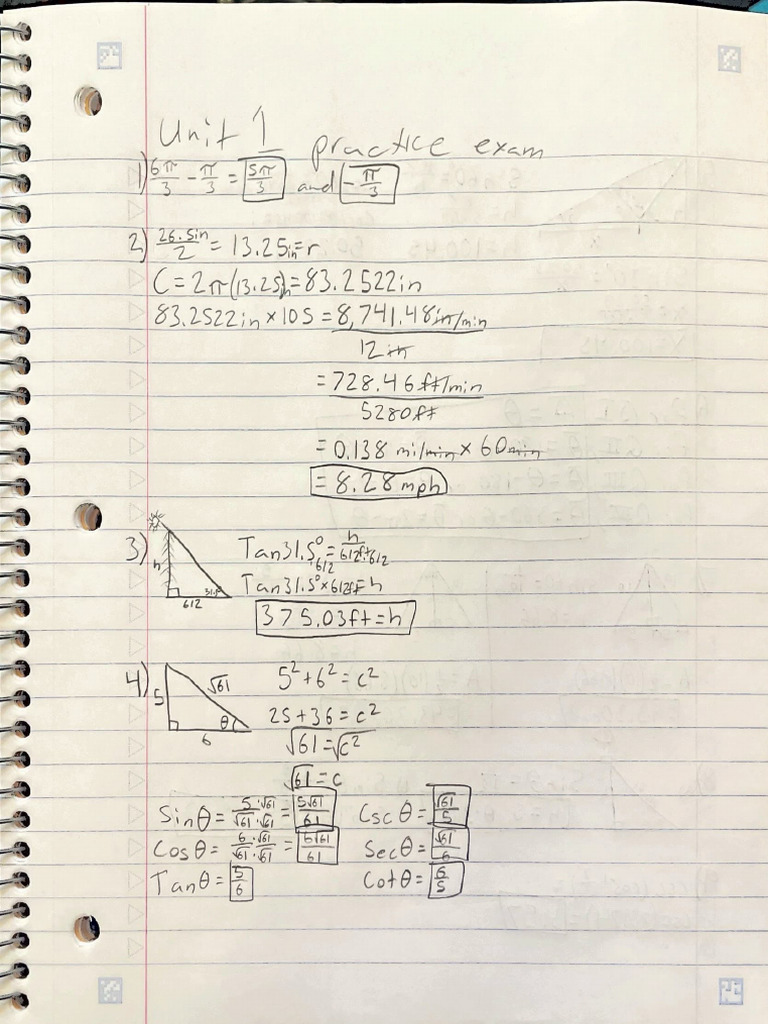 Unit 1 practice exam
1) 6π/3 - π/3 = 5π/3 and -π/3
2) 26.5in/2 = 13.25in=r
C = 2π(13.25in)=83.2522in
83.2522in × 105 = 8,741.48in/min
12in
= 728.46ft/min
5280ft
= 0.138 mi/min × 60min
= 8.28mph
3) h 612 31.5° Tan31.5° = h/612ft
·612 ·612
Tan31.5° × 612ft=h
375.03ft=h
4) 5 √61 θ 6 5² + 6² = c²
25 + 36 = c²
√61 = √c²
√61 = c
Sinθ = 5·√61/√61·√61 = 5√61/61 Cscθ = √61/5
Cosθ = 6·√61/√61·√61 = 6√61/61 Secθ = √61/6
Tanθ = 5/6 Cotθ = 6/5